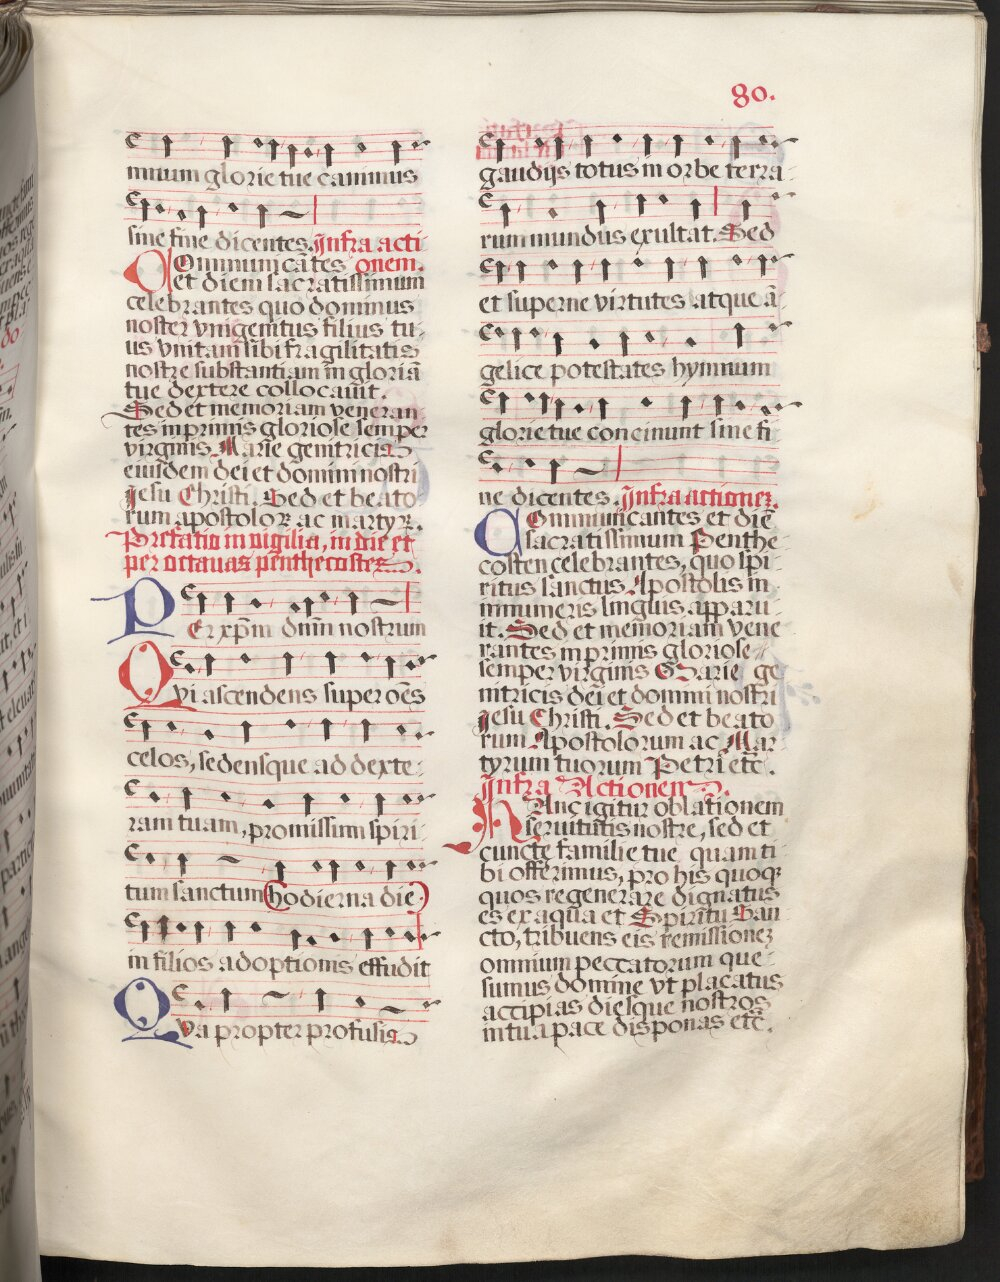 80.
mnum glorie tue canimus
sine fine dicentes. Infra acti
Ommunicātes onem.
et diem sacratissimum
celebrantes quo dominus
noster vnigenitus filius tu-
us vnitam sibi fragilitatis
nostre substantiam in gloriā
tue dextere collocauit.
Sed et memoriam veneran
tes inprimis gloriose semper
virginis Marie genitricis
eiusdem dei et domini nostri
Jesu Christi. Sed et beato
rum apostoloꝝ ac martyꝝ.
Prefatio in uigilia, in die et
per octauas penthecostes.
PEr xp̄m dn̄m nostrum
Qvi ascendens super oēs
celos, sedensque ad dexte-
ram tuam, promissum spiri-
tum sanctum (hodierna die)
in filios adoptionis effudit
Qva propter profusis
gaudijs totus in orbe terra-
rum mundus exultat. Sed
et superne virtutes atque ā-
gelice potestates hymnum
glorie tue concinunt sine fi-
ne dicentes. Infra actionez.
COmmunicantes et diē
sacratissimum Penthe-
costen celebrantes, quo spi-
ritus sanctus Apostolis in
innumeris linguis apparu-
it. Sed et memoriam vene
rantes inprimis gloriose
semper virginis Marie ge
nitricis dei et domini nostri
Jesu Christi. Sed et beato
rum Apostolorum ac Mar
tyrum tuorum Petri etc̄.
Infra Actionem.
HAnc igitur oblationem
seruitutis nostre, sed et
cuncte familie tue quam ti-
bi offerimus, pro his quoqꝫ
quos regenerare dignatus
es ex aqua et Spiritu San-
cto, tribuens eis remissionez
omnium peccatorum que-
sumus domine vt placatus
accipias diesque nostros
in tua pace disponas etc̄.